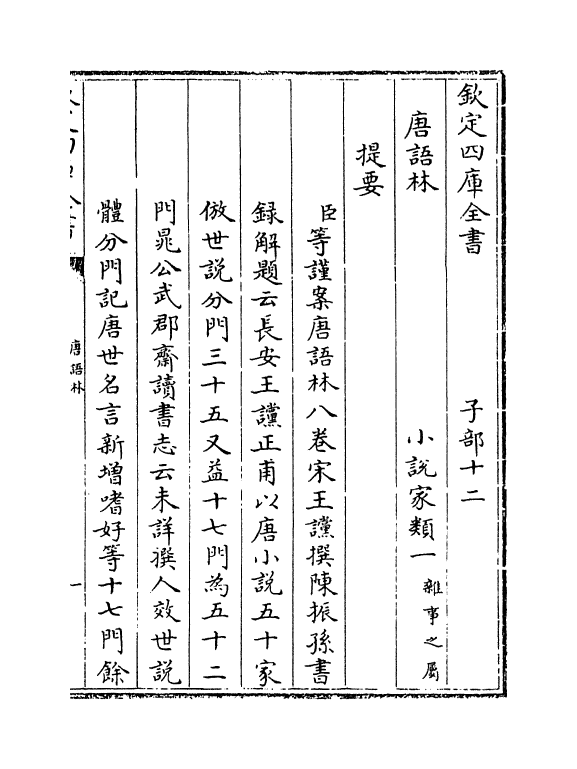 欽定四庫全書　　　子部十二
唐語林　　　小說家類一雜事之屬
提要
臣等謹案唐語林八卷宋王讜撰陳振孫書
録解題云長安王讜正甫以唐小說五十家
倣世説分門三十五又益十七門為五十二
門晁公武郡齋讀書志云未詳撰人效世説
體分門記唐世名言新增嗜好等十七門餘
唐語林　　　一